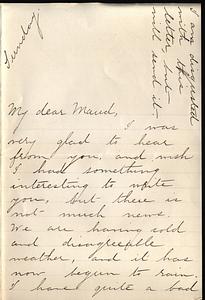 I am disgusted
with this
letter, but
will send it.
Tuesday.
My dear Maud,
I was
very glad to hear
from you, and wish
I had something
interesting to write
you, but there is
not much news.
We are having cold
and disagreeable
weather, and it has
now begun to rain.
I have quite a bad